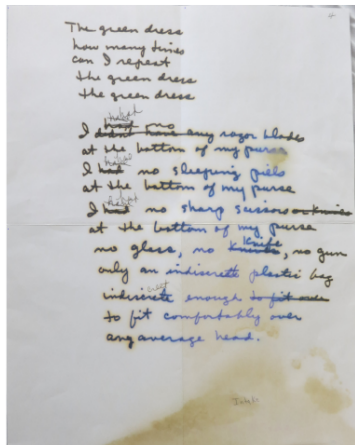 4
The green dress
how many times
can I repeat
the green dress
the green dress
had no
I didn't have any razor blades
at the bottom of my purse
I had no sleeping pills
at the bottom of my purse
I had no sharp scissors or knives
at the bottom of my purse
Knife
no glass, no knives, no gun
only an indiscrete plastic bag
indiscrete enough to fit over
to fit comfortably over
any average head.